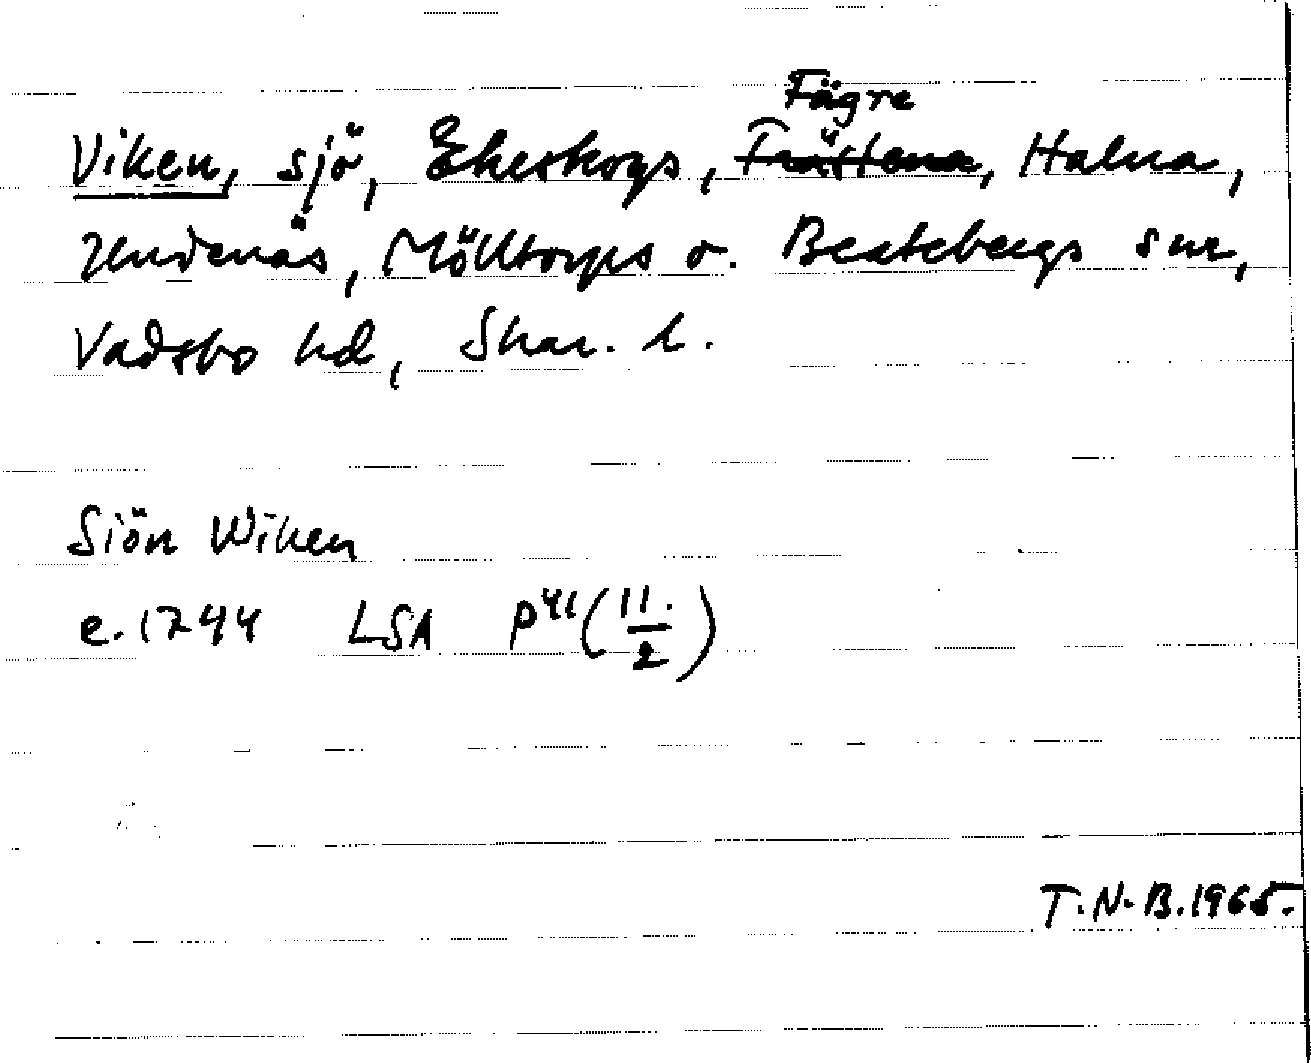 Fägre
Viken, sjö, Ekeskogs, Trästena, Halna,
Undenäs, Mölltorps o. Beatebergs snr,
Vadsbo hd, Skar. l.
Siön Wiken
e. 1744 LSA P41 (11./2)
T.N.B. 1965.